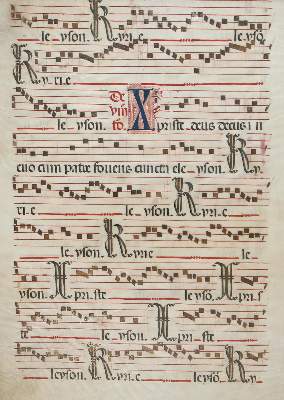 le yson. Kyri.e leyso.
Ky.ri.e
le yson. xpiste. deus decus
cuo cum patre fovens cuncta ele yson. Ky.
ri.e le yson. Kyri.e
le yson. Kyrie le
yson. Xpi ste le yso. Xpi.s
te le yson. Xpi ste.
leyson. Kyri.e leyso. Ky